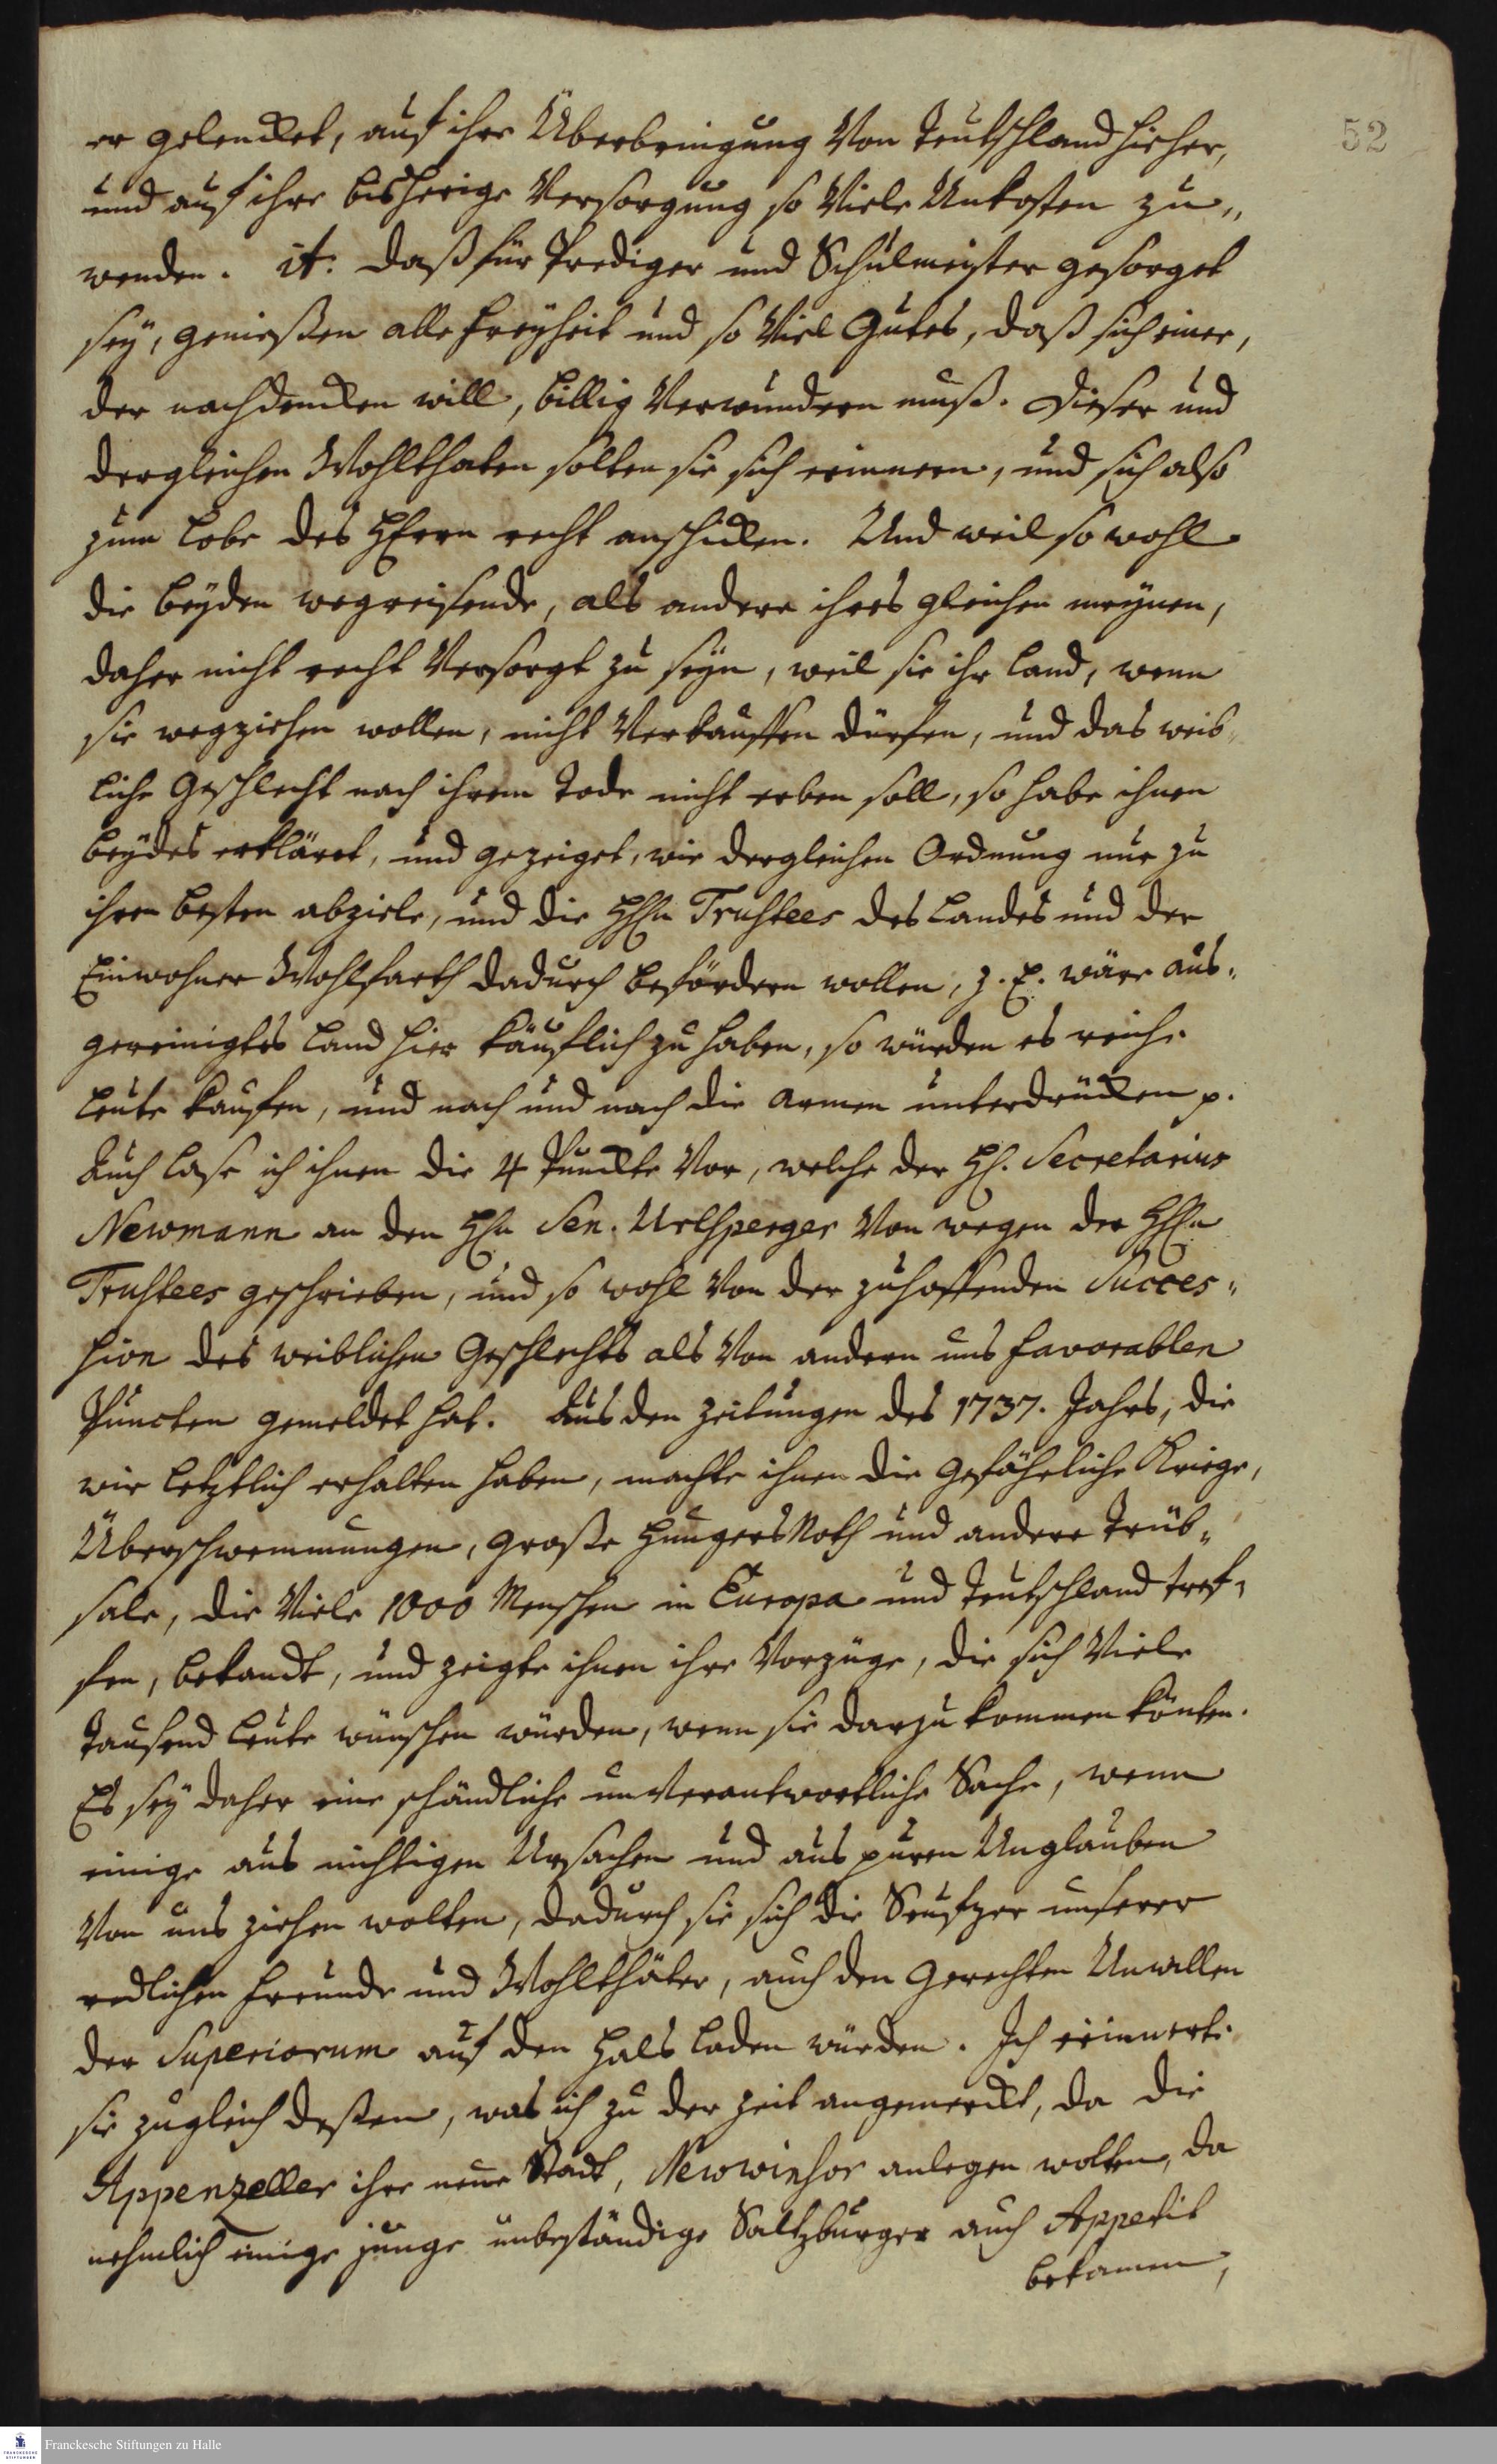 52
er gelencket, auf ihre Überbringung von Teutschland hieher,
und auf ihre bisherige Versorgung so viele Unkosten zu„
wenden. it. daß für Prediger und Schulmeister gesorget
sey, genießen alle Freyheit und so viel Gutes, daß sich einer,
der nachdencken will, billig verwundern muß. Dieser und
dergleichen Wohlthaten solten sie sich erinnern, und sich also
zum Lobe des HErrn recht anschicken. Und weil so wohl
die beyden wegreisende, als andere ihres gleichen meynen,
daher nicht recht versorgt zu seyn, weil sie ihr Land, wenn
sie wegziehen wollen, nicht verkauffen dürfen, und das weib„
liche Geschlecht nach ihrem Tode nicht erben soll, so habe ihnen
beydes erkläret, und gezeiget, wie dergleichen Ordnung nur zu
ihren besten abziele, und die HHn Trustees des Landes und der
Einwohner Wohlfarth dadurch befördern wollen, z. E. wäre aus„
gereinigtes Land hier käuflich zu haben, so würden es reiche
Leute kaufen, und nach und nach die Armen unterdrücken p.
Auch lase ich ihnen die 4 Punckte vor, welche der H. Secretarius
Newmann an den Hn Sen. Urlsperger von wegen der HHn
Trustees geschrieben, und so wohl von der zuhoffenden Succes„
sion des weiblichen Geschlechts als von andern uns favorablen
Puncten gemeldet hat. Aus den Zeitungen des 1737. Jahrs, die
wir letztlich erhalten haben, machte ihnen die gefährliche Kriege,
Überschwemmungen, große HungersNoth und andere Trüb„
sale, die viele 1000 Menschen in Europa und Teutschland tref„
fen, bekandt, und zeigte ihnen ihre Vorzüge, die sich viele
Tausend Leute wünschen würden, wenn sie darzu kommen könten.
Es sey daher eine schändliche unverantwortliche Sache, wenn
einige aus nichtigen Ursachen und aus puren Unglauben
von uns ziehen wolten, dadurch sie sich die Seufzer unserer
redlichen Freunde und Wohlthäter, auch den gerechten Unwillen
der Superiorum auf den Hals laden würden. Ich erinnerte
sie zugleich deßen, was ich zu der Zeit angemerckt, da die
Appenzeller ihre neue Stadt, Newwinsor anlegen wolten, da
nehmlich einige junge unbeständige Saltzburger auch Appetit
bekamen,
Franckesche Stiftungen zu Halle